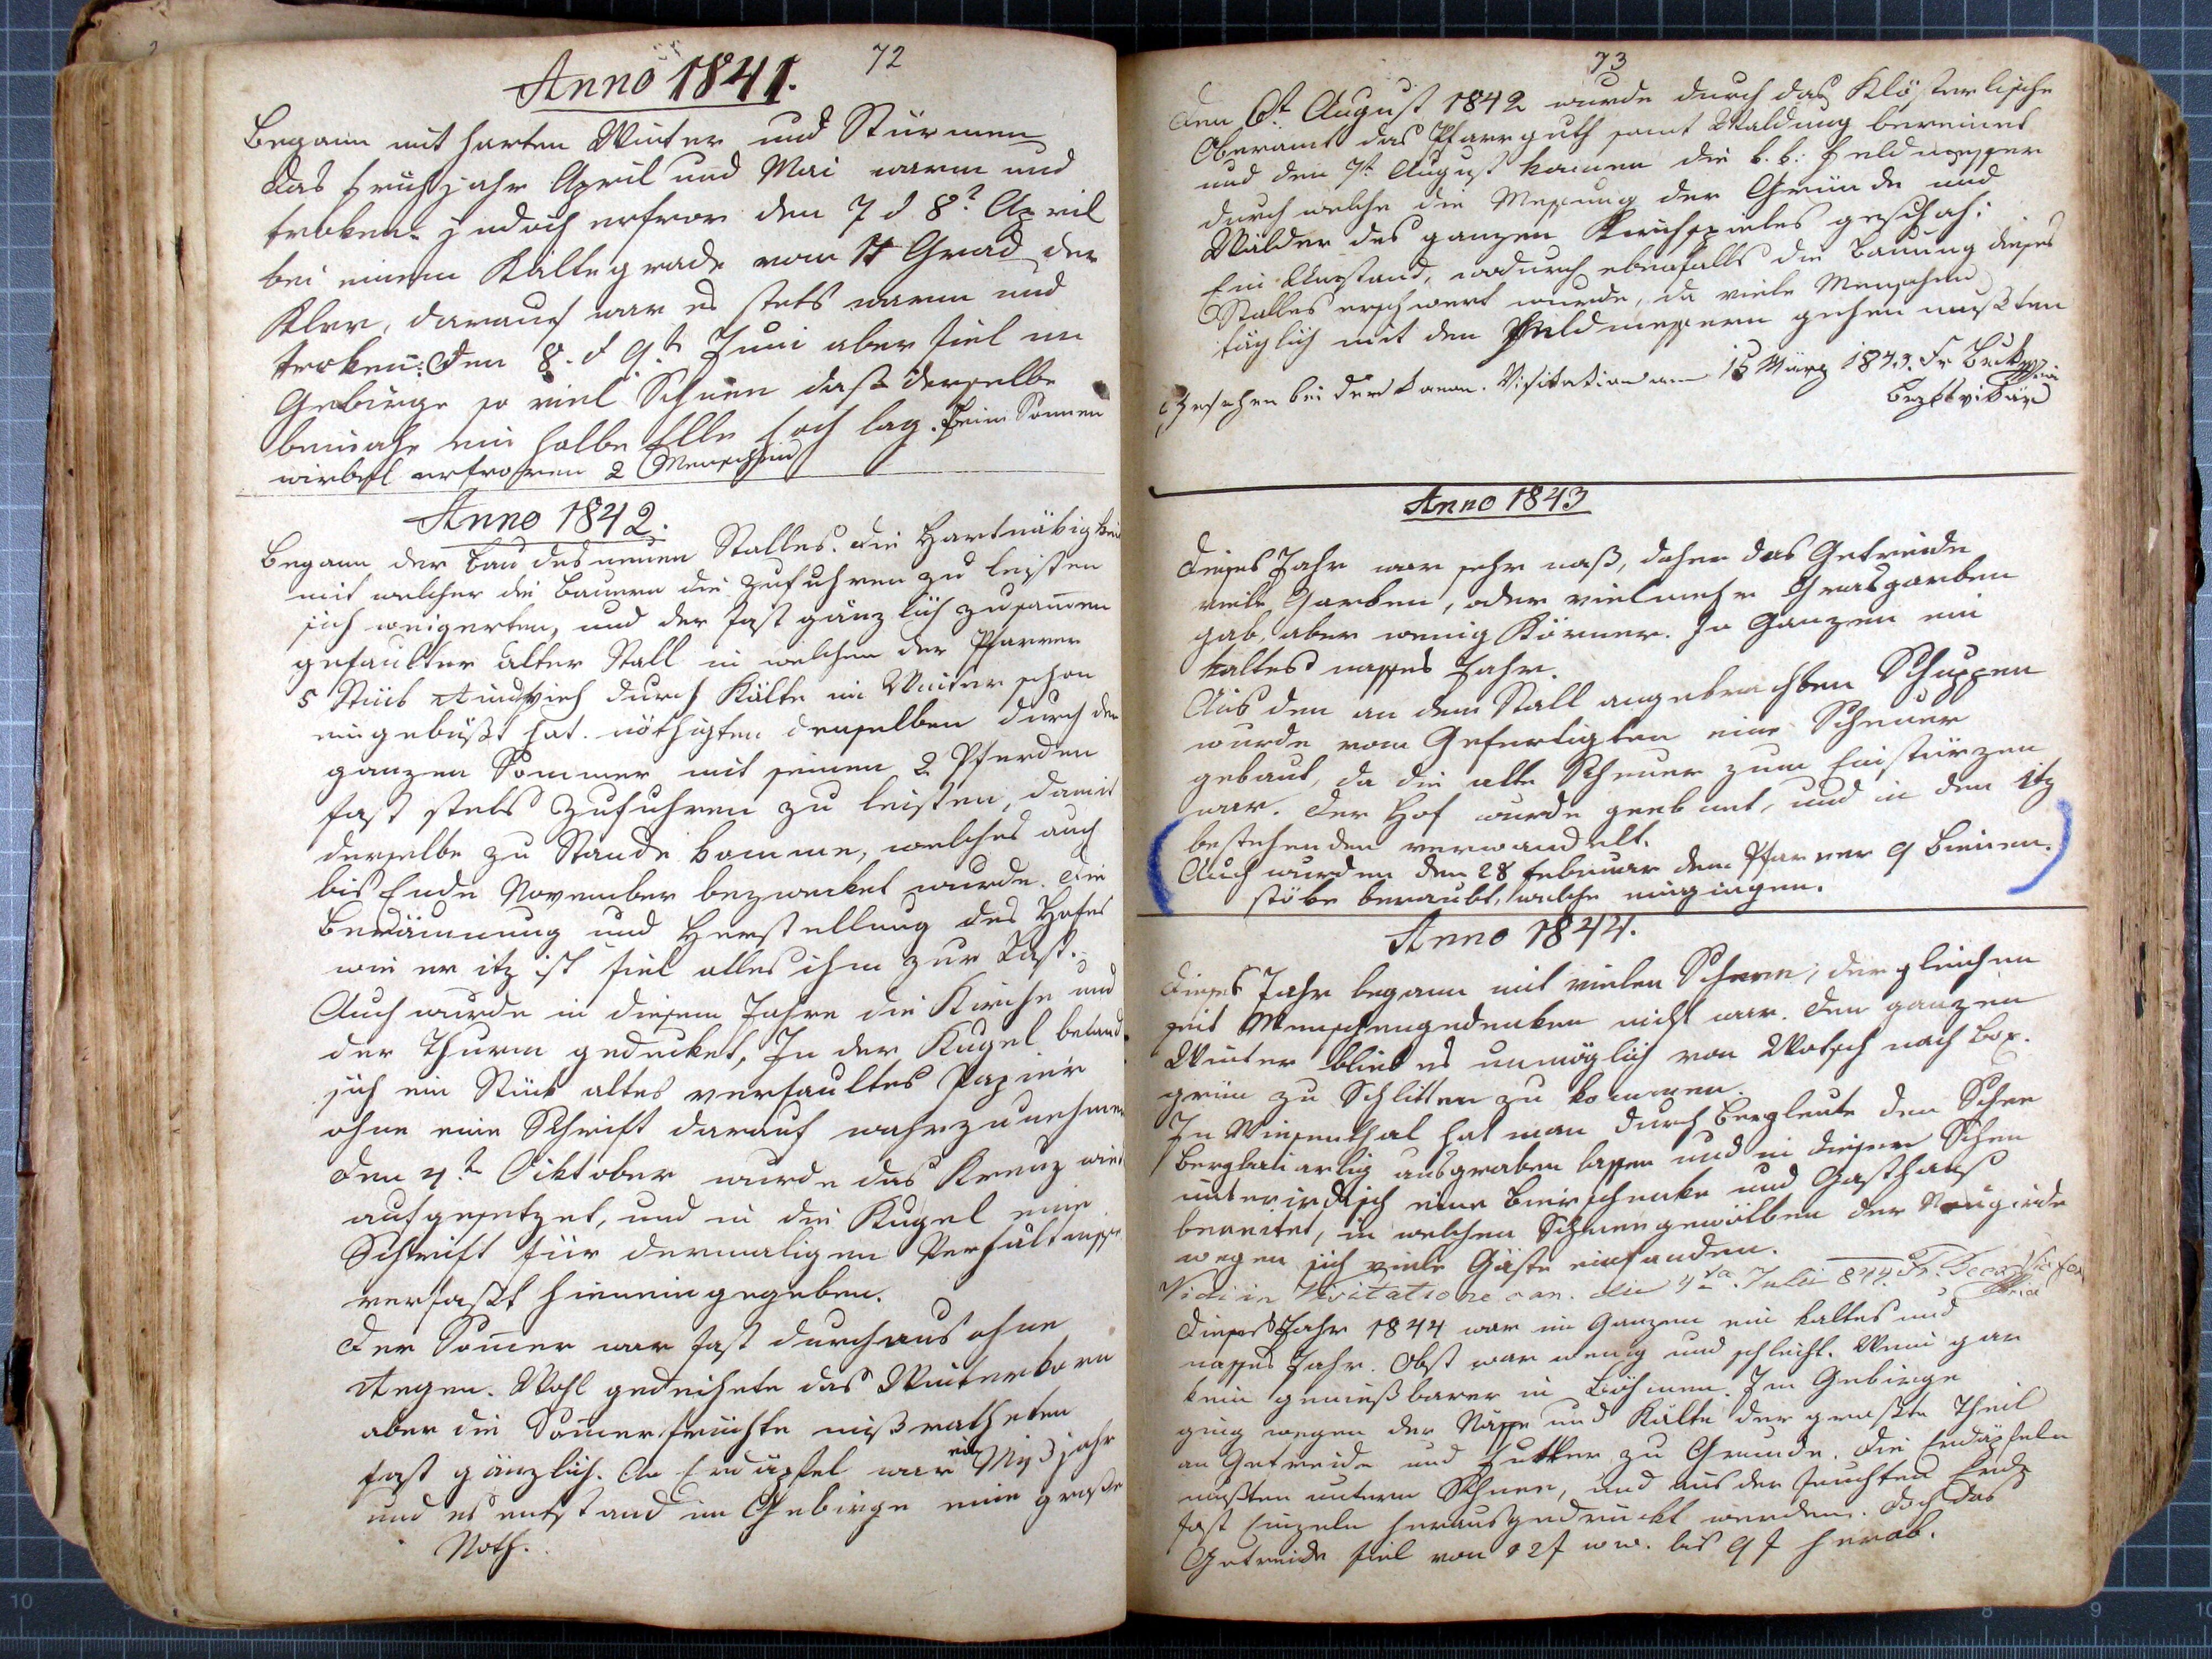 72
Anno 1841.
Begann mit harten Winter und Stürmen
das Frühjahr April und Mai warm und
troken. jedoch erfror den 7 d 8t April
bei einem Kältegrade vom 11 Grad der
Klee, darauf war es stets warm und
troken: Den 8. d 9t Juni aber fiel im
Gebirge so viel Schnee daß derselbe
beinahe ein halbe Elle hoch lag. Beim Sonnen
wirbel erfrohren 2 Menschen
Anno 1842.
Begann der Bau des neuen Stalles. Die Hartnäkigkeit
mit welcher die Bauern die Zufuhren zu leisten
sich weigerten, und der fast gänzlich zusamen
gefaulter alter Stall in welchen der Pfarrer
5 Stük Rindvieh durch Kälte im Winter schon
eingebüßt hat. nöthigten denselben durch den
ganzen Sommer mit seinen 2 Pferden
fast stets Zufuhren zu leisten, damit
derselbe zu Stande komme, welches auch
bis Ende November bezwecket wurde. Die
Beräumung und Herstellung des Hofes
wie er itz ist fiel alles ihm zur Last.
Auch wurde in diesem Jahre die Kirche und
der Thurm gedecket, In der Kugel befand
sich ein Stük altes verfaultes Papier
ohne eine Schrift darauf wahrzunehmen
Den 4t Oiktober wurde das Kreuz wied
aufgesetzet, und in die Kugel eine
Schrift für dermaligen Verhältnisse
verfaßt hineingegeben.
Der Somer war fast durchaus ohne
Regen. Wohl gedeihete das Winterkorn
aber die Somerfrüchte mißratheten
fast gänzlich. An Erdäpfel war ein Mißjahr
und es entstand im Gebirge eine große
Noth.
73
Den 6t August 1842 wurde durch das Klösterlische
Oberamt das Pfarrguth samt Waldung bereinet
und den 7t August kamen die k. k. Feldmesser
durch welche die Messung der Gründe und
Wälder des ganzen Kirchspieles geschah:
Ein Umstand, wodurch ebenfalls die Bauung dieses
Stalles erschwert wurde, da viele Menschen
täglich mit den Feldmessern gehen mußten
Gesehen bei der kanon. Visitation am 15 März 1843. Fr
Bezktvikär
Anno 1843
Dieses Jahr war sehr naß, daher das Getreide
viele Garben, oder vielmehr Grasgarben
gab, aber wenig Körner. Im Ganzen ein
kaltes nasses Jahr.
Aus den an dem Stall angebrachten Schuppen
wurde vom Gefertigten eine Scheuer
gebaut, da die alte Scheuer zum Einstürzen
war. Der Hof wurde geebnet, und in den itz
bestehenden verwandelt.
Auch wurden den 28 Februar dem Pfarrer 9 Bienen-
stöke beraubt, welche eingingen.
Anno 1844.
Dieses Jahr begann mit vielen Schnee; dergleichen
seit Menschengedenken nicht war. Den ganzen
Winter blieb es unmöglich von Wotsch nach Box-
grün zu Schlitten zu kommen.
In Wiesenthal hat man durch Bergleute den Schnee
bergbauartig ausgraben lassen und in diesem Schnee
unterirdisch eine Bierschenke und Gasthaus
bereitet, in welchen Schneegewölben der Neugirde
wegen sich viele Gäste einfanden.
Vidi in Visitatione can. die 4ta Julii 844. Fr.
Dieses Jahr 1844 war im Ganzen ein kaltes und
nasses Jahr. Obst war wenig und schlecht. Wein gar
kein genießbarer in Böhmen. Im Gebirge
ging wegen der Näße und Kälte der großte Theil
an Getreide und Futter zu Grunde. Die Erdäpfeln
mußten unterm Schnee, und aus der feuchten Erde
fast Einzeln herausgedruckt werden. Doch das
Getreide fiel von 12 f ww. bis 9 f herab.